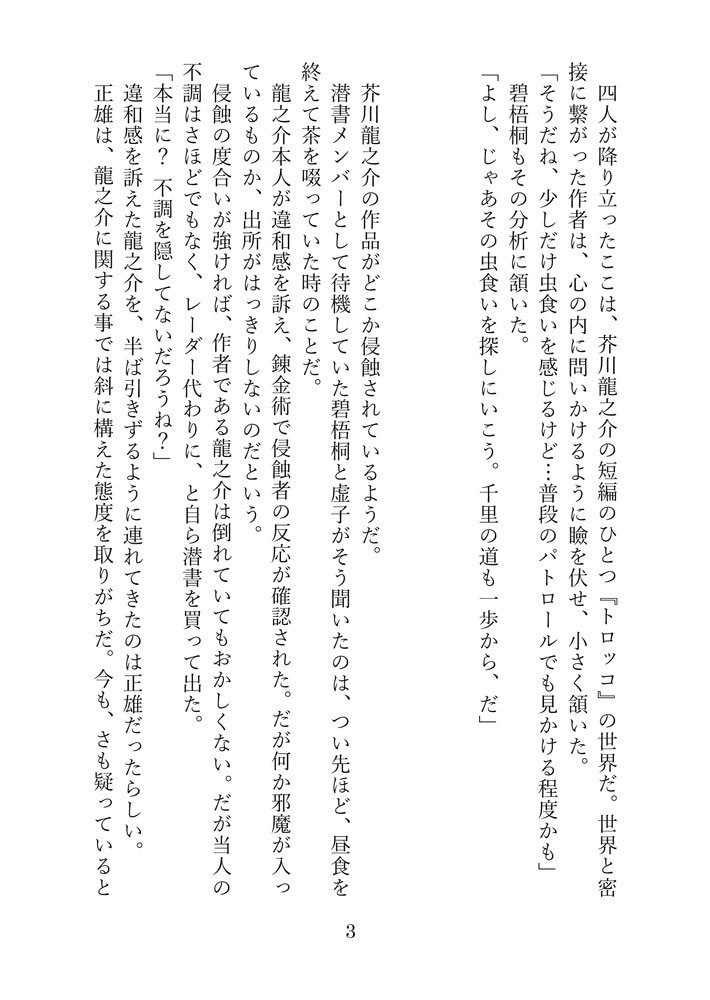 四人が降り立ったここは、芥川龍之介の短編のひとつ『トロッコ』の世界だ。世界と密
接に繋がった作者は、心の内に問いかけるように瞼を伏せ、小さく頷いた。
「そうだね、少しだけ虫食いを感じるけど…普段のパトロールでも見かける程度かも」
碧梧桐もその分析に頷いた。
「よし、じゃあその虫食いを探しにいこう。千里の道も一歩から、だ」
芥川龍之介の作品がどこか侵蝕されているようだ。
潜書メンバーとして待機していた碧梧桐と虚子がそう聞いたのは、つい先ほど、昼食を
終えて茶を啜っていた時のことだ。
龍之介本人が違和感を訴え、錬金術で侵蝕者の反応が確認された。だが何か邪魔が入っ
ているものか、出所がはっきりしないのだという。
侵蝕の度合いが強ければ、作者である龍之介は倒れていてもおかしくない。だが当人の
不調はさほどでもなく、レーダー代わりに、と自ら潜書を買って出た。
「本当に？ 不調を隠してないだろうね？」
違和感を訴えた龍之介を、半ば引きずるように連れてきたのは正雄だったらしい。
正雄は、龍之介に関する事では斜に構えた態度を取りがちだ。今も、さも疑っていると
3